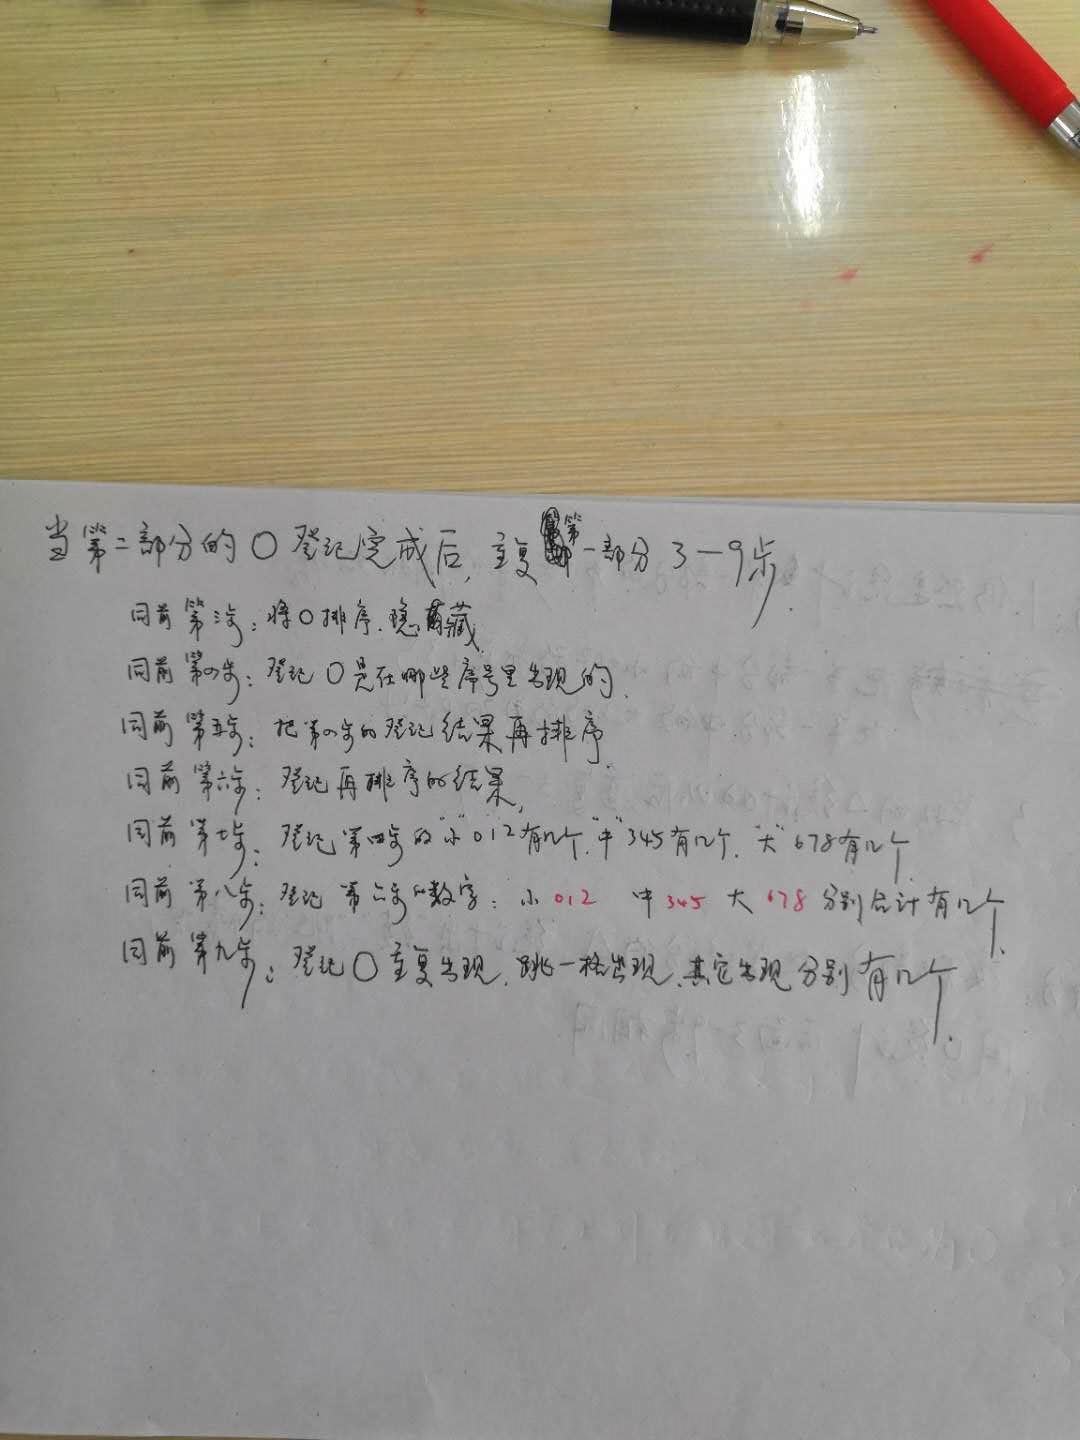 当第二部分的〇登记完成后,重复第一部分3—9步.
同前第三步:将〇排序.隐藏
同前第四步:登记〇是在哪些序号里出现的.
同前第五步:把第四步的登记结果再排序.
同前第六步:登记再排序的结果,
同前第七步:登记第四步的"小"012有几个."中"345有几个."大"678有几个.
同前第八步:登记第六步的数字:小012 中345 大678分别合计有几个.
同前第九步:登记〇重复出现.跳一格出现.其它出现分别有几个.